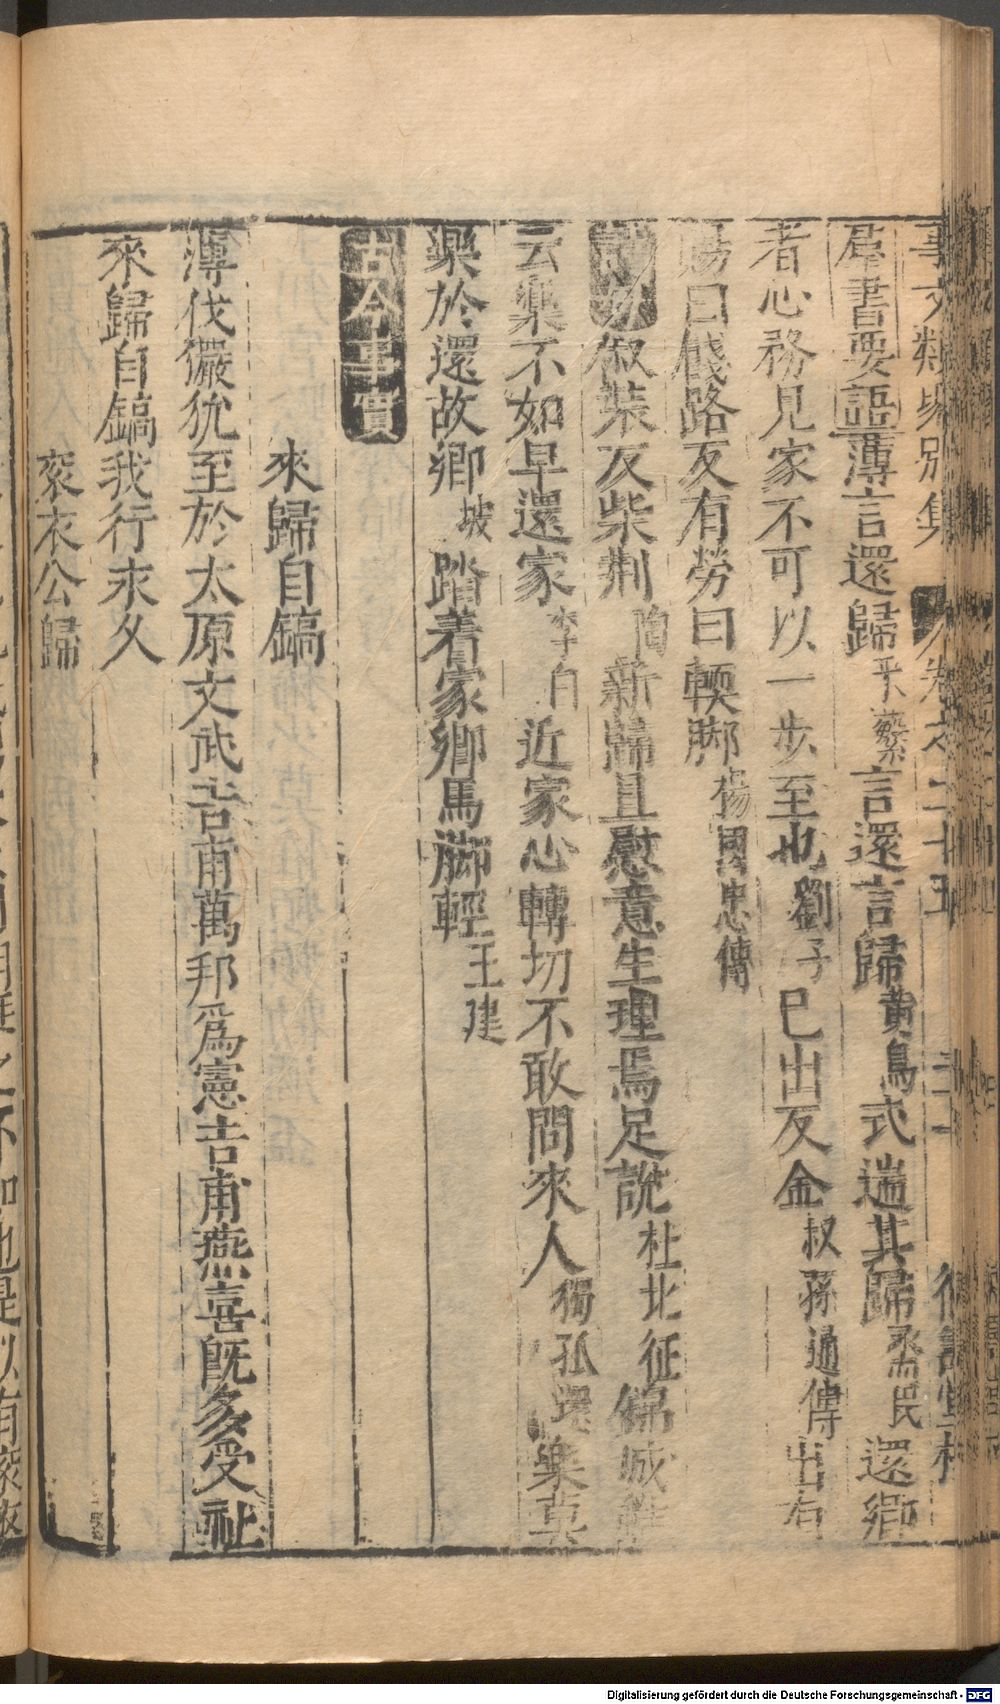 事文類聚別集 卷之二十五
羣書要語薄言還歸采蘩言還言歸黃鳥式遄其歸烝民還鄉
者心務見家不可以一步至也劉子已出反金叔孫通傳出有
賜曰餞路反有勞曰輭脚楊國忠傳
俶裝反柴荆陶新歸且慰意生理焉足說杜北征錦城雖
云樂不如早還家李白近家心轉切不敢問來人獨孤還樂莫
樂於還故鄉坡踏着家鄉馬脚輕王建
古今事實
來歸自鎬
薄伐玁狁至於太原文武吉甫萬邦爲憲吉甫燕喜旣多受祉
來歸自鎬我行永久
衮衣公歸
Digitalisierung gefördert durch die Deutsche Forschungsgemeinschaft - DFG